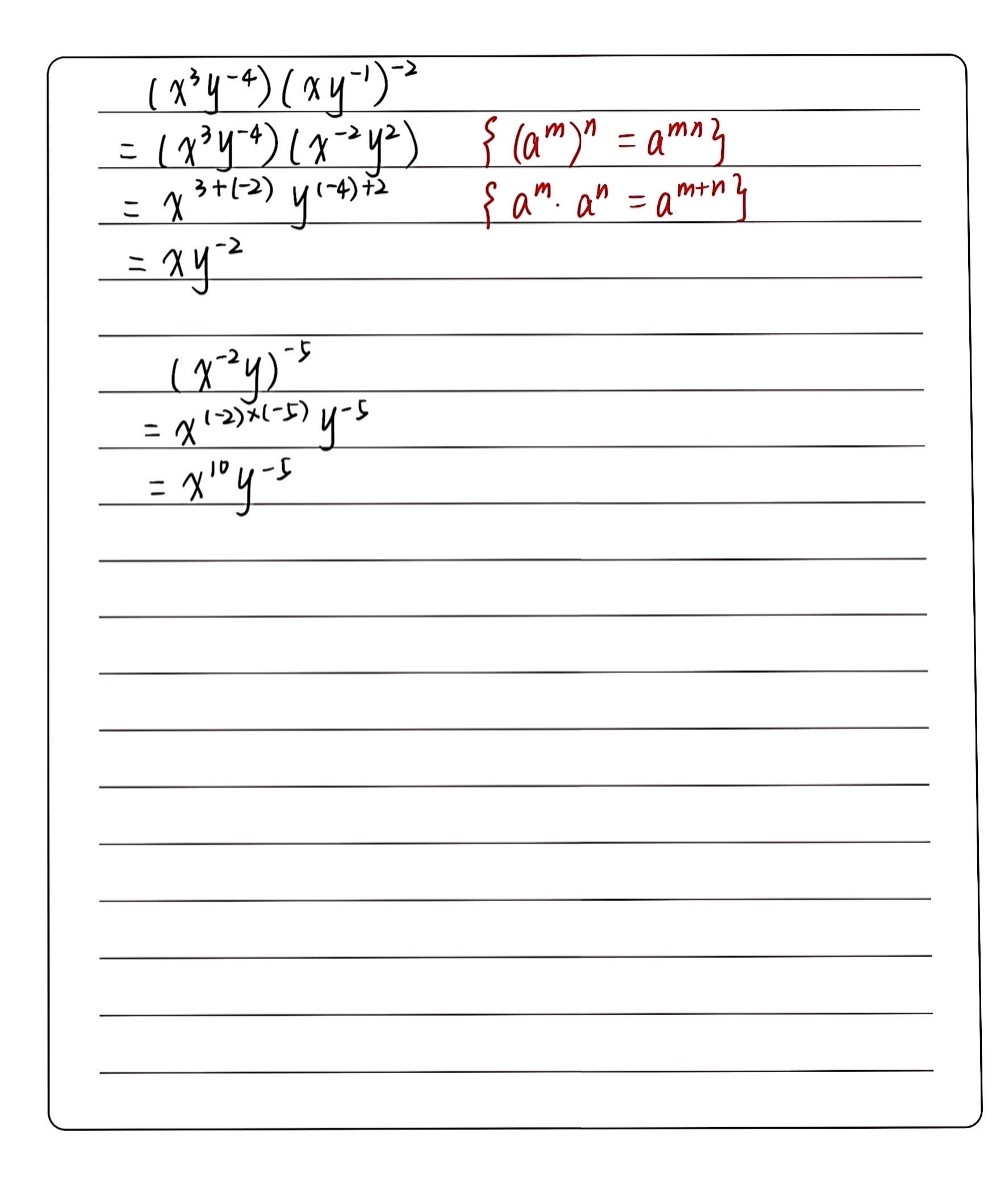 (x³y⁻⁴)(xy⁻¹)⁻²
= (x³y⁻⁴)(x⁻²y²) {(aᵐ)ⁿ = aᵐⁿ}
= x³⁺⁽⁻²⁾ y⁽⁻⁴⁾⁺² {aᵐ· aⁿ = aᵐ⁺ⁿ}
= xy⁻²
(x⁻²y)⁻⁵
= x⁽⁻²⁾ˣ⁽⁻⁵⁾ y⁻⁵
= x¹⁰y⁻⁵